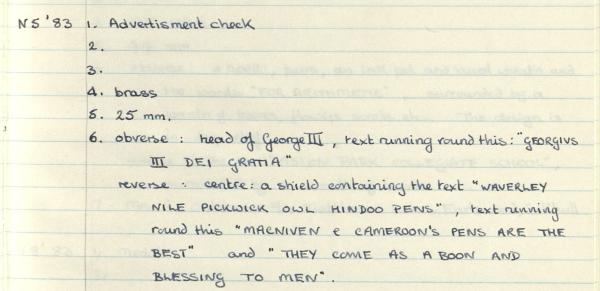 NS '83 1. Advertisment check
2.
3.
4. brass
5. 25 mm.
6. obverse : head of George III, text running round this : "GEORGIVS
III DEI GRATIA"
reverse : centre : a shield containing the text "WAVERLEY
NILE PICKWICK OWL HINDOO PENS", text running
round this "MACNIVEN & CAMEROON'S PENS ARE THE
BEST" and "THEY COME AS A BOON AND
BLESSING TO MEN".